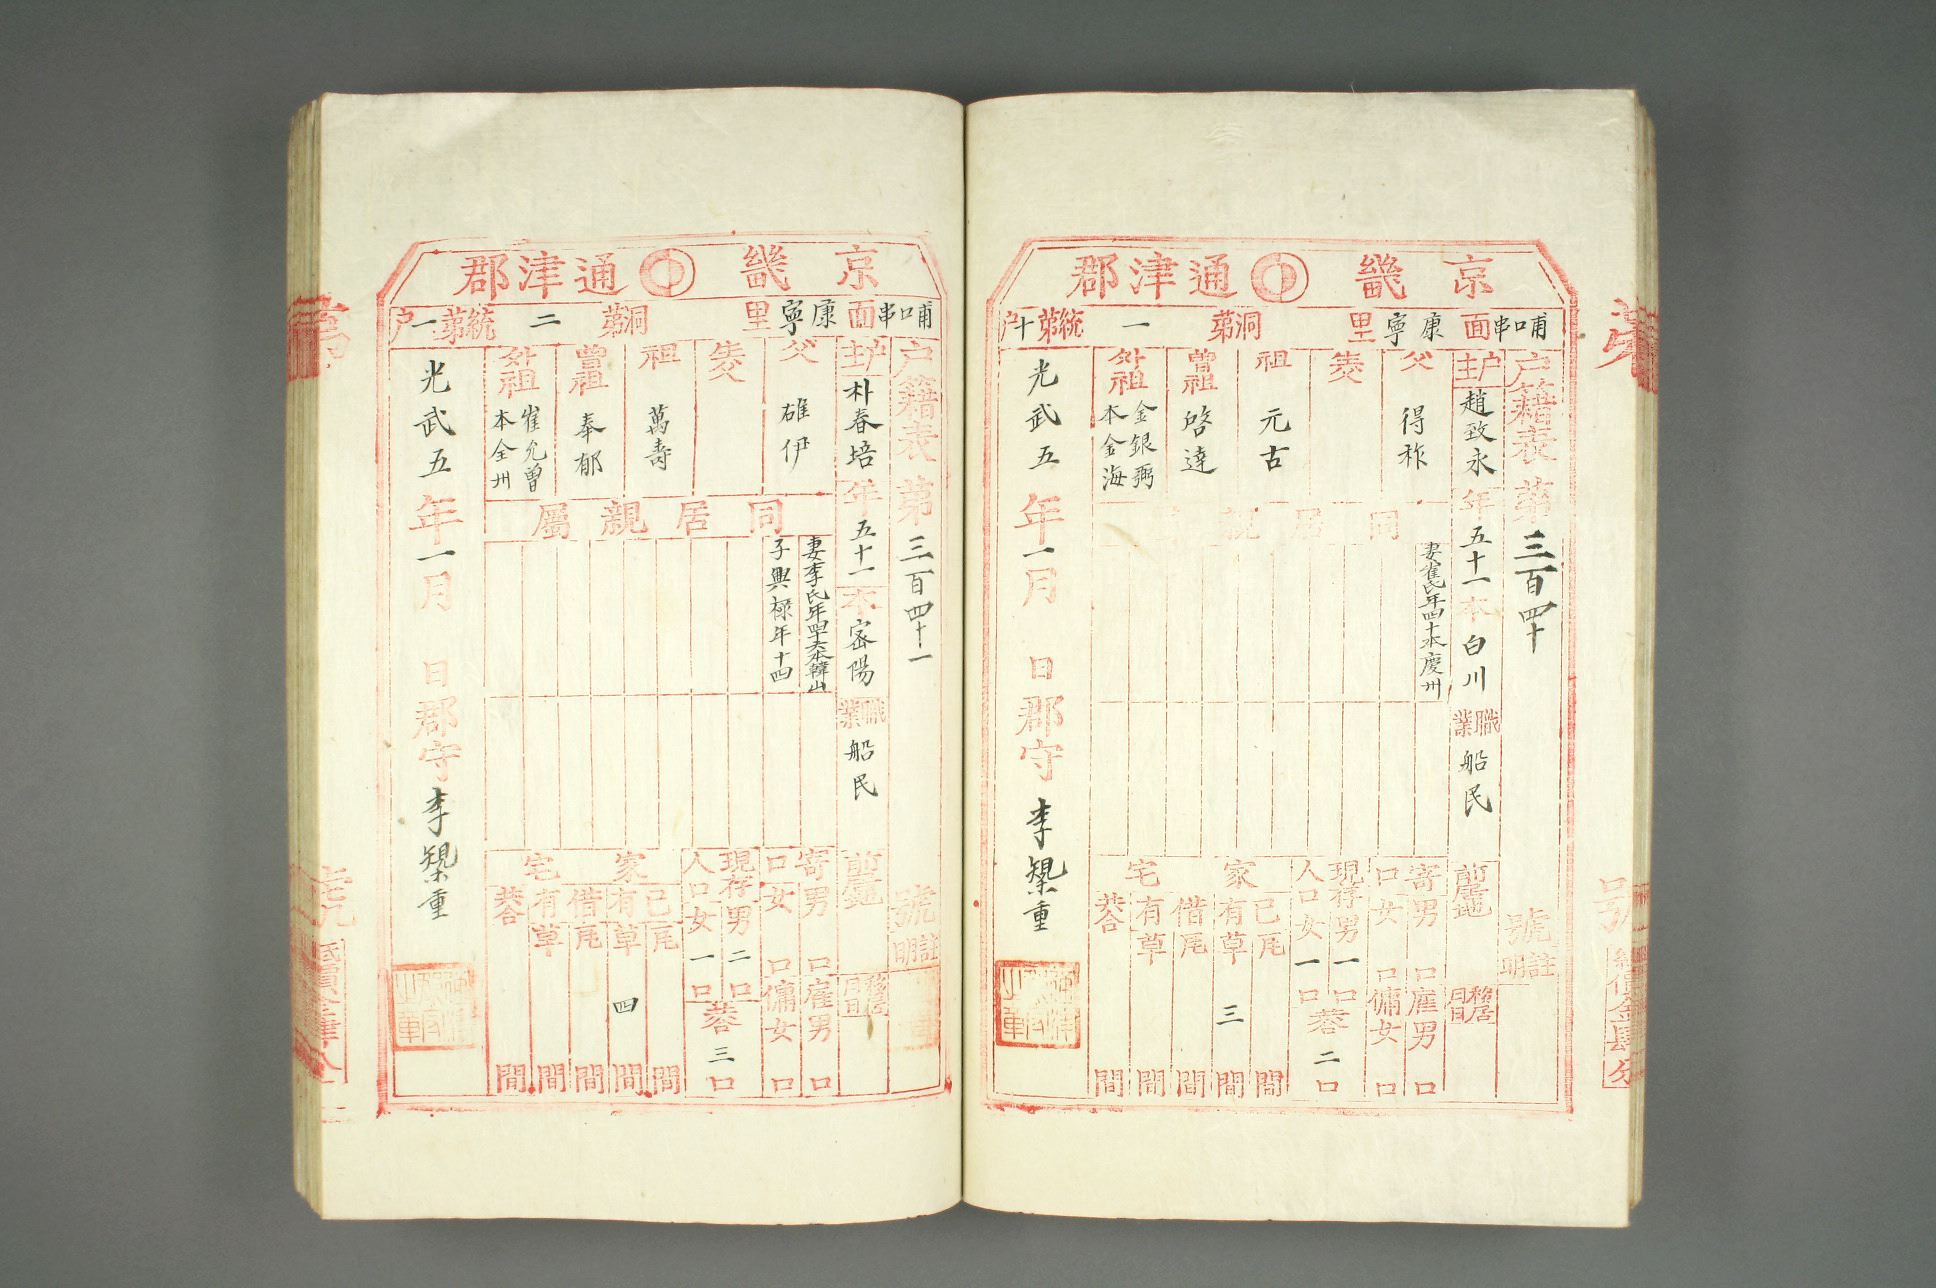 京畿通津郡
哺口串面康寧里洞第一統第十戶
戶籍表第三百四十號
註明
戶主趙致永年五十一本白川職業船民
前居地
移居月日
父得祚
生父
祖元古
曾祖啓達
外祖金銀弼本金海
同居親屬
妻崔氏年四十本慶州
寄口男口女口
雇男口傭女口
現存人口男一口女一口共二口
家宅
己有瓦間
有草三間
借瓦間
有草間
共合間
光武五年一月日郡守李

京畿通津郡
哺口串面康寧里洞第二統第一戶
戶籍表第三百四十一號
註明
戶主朴春培年五十一本密陽職業船民
前居地
移居月日
父雄伊
生父
祖萬壽
曾祖奉郁
外祖崔允曾本全州
同居親屬
妻李氏年四十六本韓山
子興祿年十四
寄口男口女口
雇男口傭女口
現存人口男二口女一口共三口
家宅
己有瓦間
有草四間
借瓦間
有草間
共合間
光武五年一月日郡守李